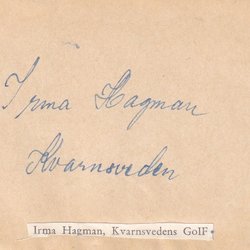 Irma Hagman
Kvarnsveden
Irma Hagman, Kvarnsvedens GoIF